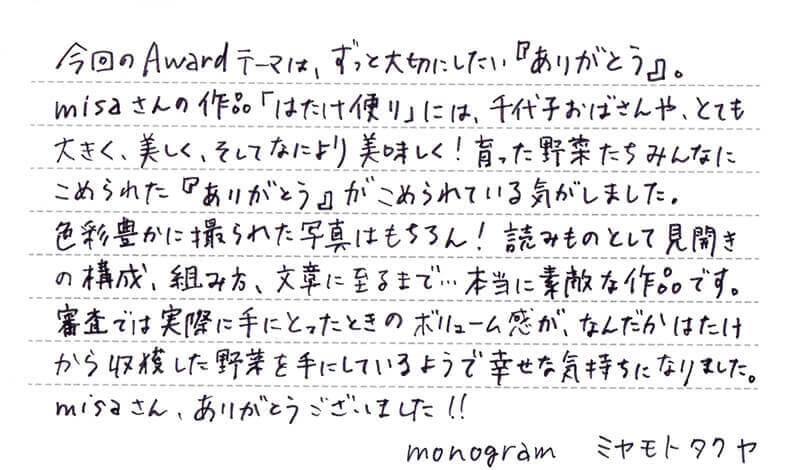 今回のAwardテーマは、ずっと大切にしたい『ありがとう』。
misaさんの作品「はたけ便り」には、千代子おばさんや、とても
大きく、美しく、そしてなにより美味しく！育った野菜たちみんなに
こめられた『ありがとう』がこめられている気がしました。
色彩豊かに撮られた写真はもちろん！読みものとして見開き
の構成、組み方、文章に至るまで…本当に素敵な作品です。
審査では実際に手にとったときのボリューム感が、なんだかはたけ
から収獲した野菜を手にしているようで幸せな気持ちになりました。
misaさん、ありがとうございました!!
monogram ミヤモトタクヤ